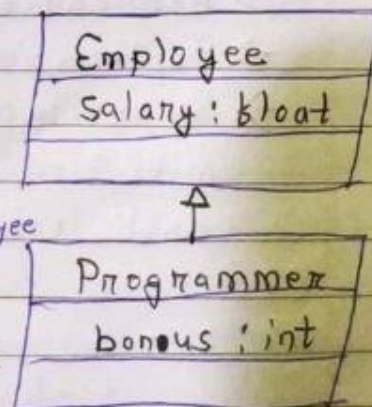 Employee
Salary : float
yee
Programmer
bonous : int